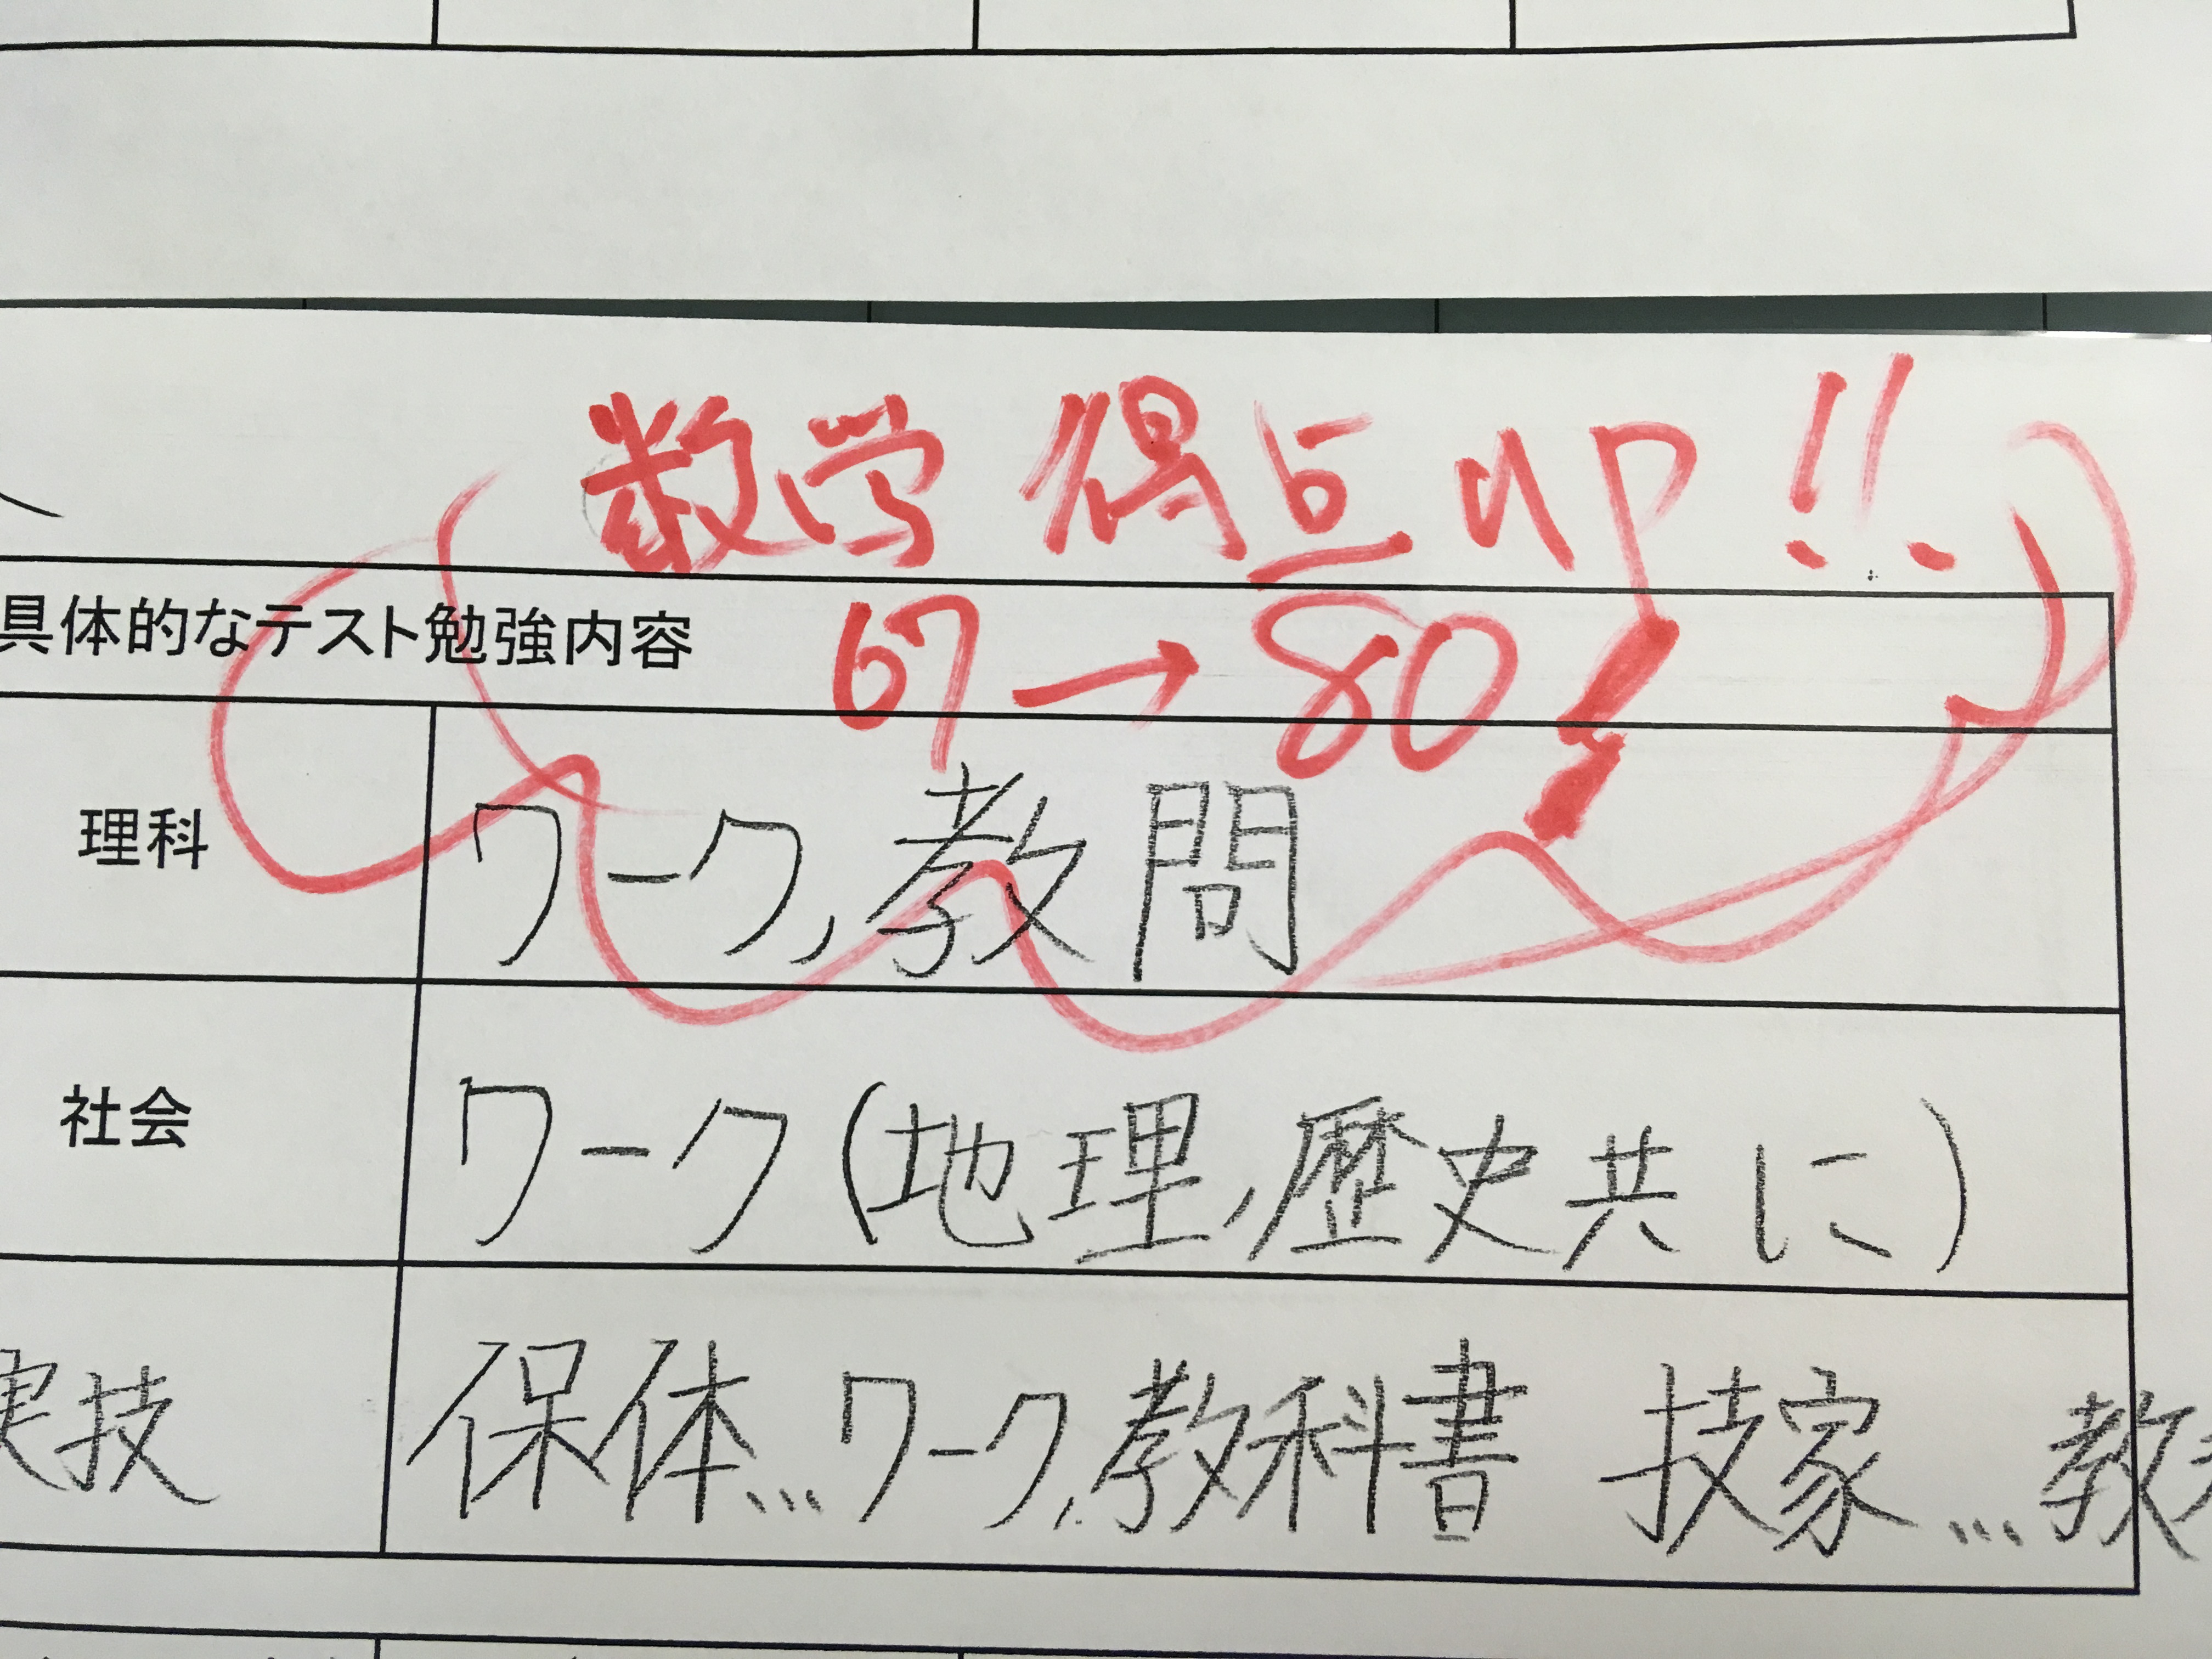 数学 得点 UP!!
具体的なテスト勉強内容
67→80
理科 ワーク,教問
社会 ワーク(地理,歴史共に)
実技 保体…ワーク,教科書 技家…教